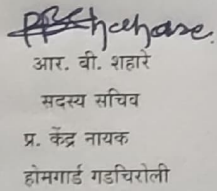 आर. बी. शहारे
सदस्य सचिव
प्र. केंद्र नायक
होमगार्ड गडचिरोली